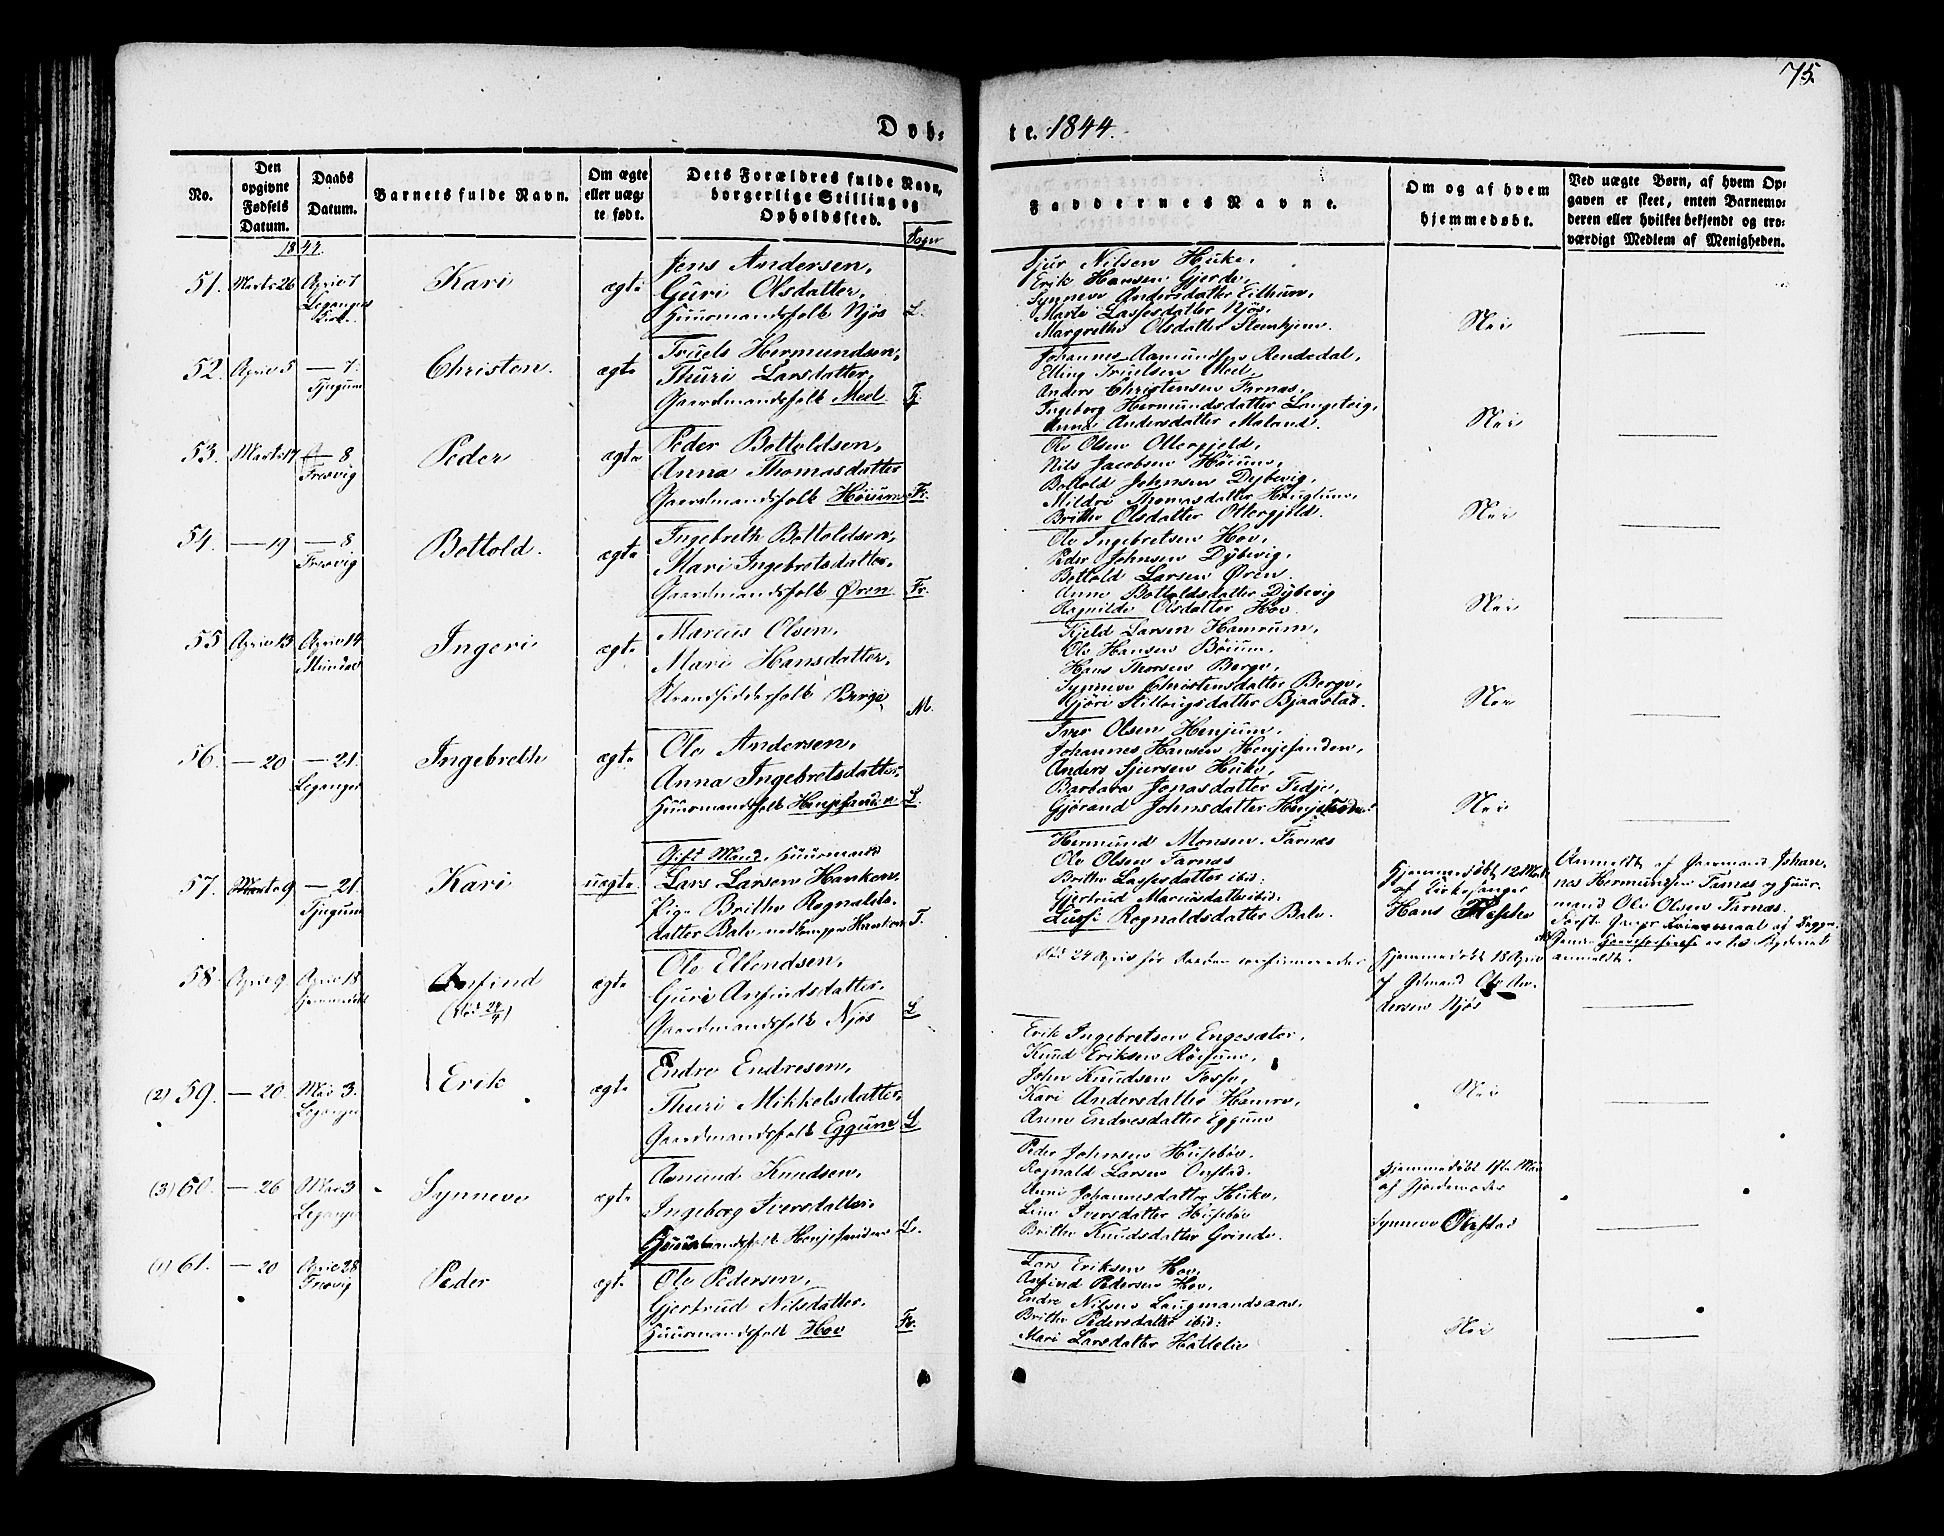 75.
Døb-
te. 1844.
No.
Den opgivne Fødsels Datum.
Daabs Datum.
Barnets fulde Navn.
Om ægte eller uægte født.
Dets Forældres fulde Navn, borgerlige Stilling og Opholdssted.
Sogn
Faddernes Navne.
Om og af hvem hjemmedøbt.
Ved uægte Børn, af hvem Opgaven er skeet, enten Barnemoderen eller hvilket bekjendt og troværdigt Medlem af Menigheden.
1844.
51. Marts 26 April 7 Leganger Kirke Kari ægte
Jens Andersen,
Guri Olsdatter,
Huusmandsfolk Njøs L.
Sjur Nilsen Huke,
Erik Hansen Gjerde,
Synneve Andersdatter Eithun,
Marte Lassesdatter Njøs,
Margrethe Olsdatter Stenhjem.
Nei
52. April 5 — 7. Tjugum Christen. ægte
Truels Hermundsen,
Thuri Larsdatter,
Gaardmandsfolk Meel T.
Johannes Aamundsen Rendedal,
Elling Truelsen Meel,
Anders Christensen Farnæs,
Ingeborg Hermundsdatter Langeteig,
Anna Andersdatter Maland.
Nei
53. Marts 17 — 8 Fresvig Peder ægte
Peder Bottoldsen,
Anna Thomasdatter
Gaardmandsfolk Høium Fr.
Ole Olsen Ottergjeld,
Nils Jacobsen Høium,
Bottold Johnsen Dybevig,
Mildri Thomasdatter Houglum,
Brithe Olsdatter Ottergjeld.
Nei
54. — 19 — 8 Fresvig Bottold. ægte
Ingebreth Bottoldsen,
Mari Ingebretsdatter,
Gaardmandsfolk Øren Fr.
Ole Ingebretsen Hov,
Peder Johnsen Dybevig,
Bottold Larsen Øren.
Anne Bottoldsdatter Dybevig
Ragnilde Olsdatter Hov.
Nei
55 April 13 April 14 Mundal Ingeri ægte
Marcus Olsen,
Mari Hansdatter,
Strandsidderfolk Berge M.
Kjeld Larsen Hamrum,
Ole Hansen Bøium,
Hans Thorsen Berge,
Synneve Christensdatter Berge,
Gjøri Stillougsdatter Bjaastad.
Nei
56. — 20 — 21. Leganger Ingebreth ægte
Ole Andersen,
Anna Ingebretsdatter,
Huusmandsfolk Henjesanden L.
Iver Olsen Henjum,
Johannes Hansen Henjesanden,
Anders Sjursen Huke,
Barbara Jonasdatter Fedje,
Gjørand Johnsdatter
Nei
57. Marts 9 — 21. Tjugum Kari uægte
Gift Mand, Huusmand
Lars Larsen Hanken
Pige Brithe Rognalds-
datter Bale T.
Hermund Monsen Farnæs
Ole Olsen Farnæs
Brithe Lassesdatter ibid:
Gjertrud Mariusdatter ibid:
Lussi Rognaldsdatter Bale.
Hjemmedøbt 12 Marts
af Kirkesanger
Hans
Anmeldt af Gaarmand Johan-
nes Hermundsen Farnæs og Huus-
mand Ole Olsen Farnæs.
anmeldt.
58. April 9 April 18 Hjemmedøbt Anfind ægte
(død 24/4)
Ole Ellendsen,
Guri Anfindsdatter,
Gaardmandsfolk Njøs L
Død 24 April før Daaben confirmeredes
Hjemmedøbt 18 April
af Gdmand Ole An-
dersen Njøs
(2) 59. — 20. Mai 3. Leganger Erik ægte
Endre Endresen,
Thuri Mikkelsdatter,
Gaardmandsfolk Eggum L
Erik Ingebretsen Engesæter,
Knud Eriksen Røisum,
John Knudsen Fosse,
Kari Andersdatter Hamre,
Anne Endresdatter Eggum
Nei
(3) 60. — 26 Mai 3 Leganger Synneve ægte
Asmund Knudsen,
Ingeborg Iversdatter,
Huusmandsfolk Henjesanden L.
Peder Johnsen Husebøe,
Rognald Larsen Orstad.
Anne Johannesdatter Huke,
Line Iversdatter Husebøe
Brithe Knudsdatter Grinde.
Hjemmedøbt 1ste Mai
af Jordemoder
Synneve Orstad
(1) 61. — 20 April 28 Fresvig Peder ægte
Ole Pedersen,
Gjertrud Nilsdatter,
Huusmandsfolk Hov Fr.
Lars Eriksen Hov,
Anfind Pedersen Hov,
Endre Nilsen Laugmandsaas,
Brithe Pedersdatter ibid:
Mari Larsdatter Hattelie
Nei